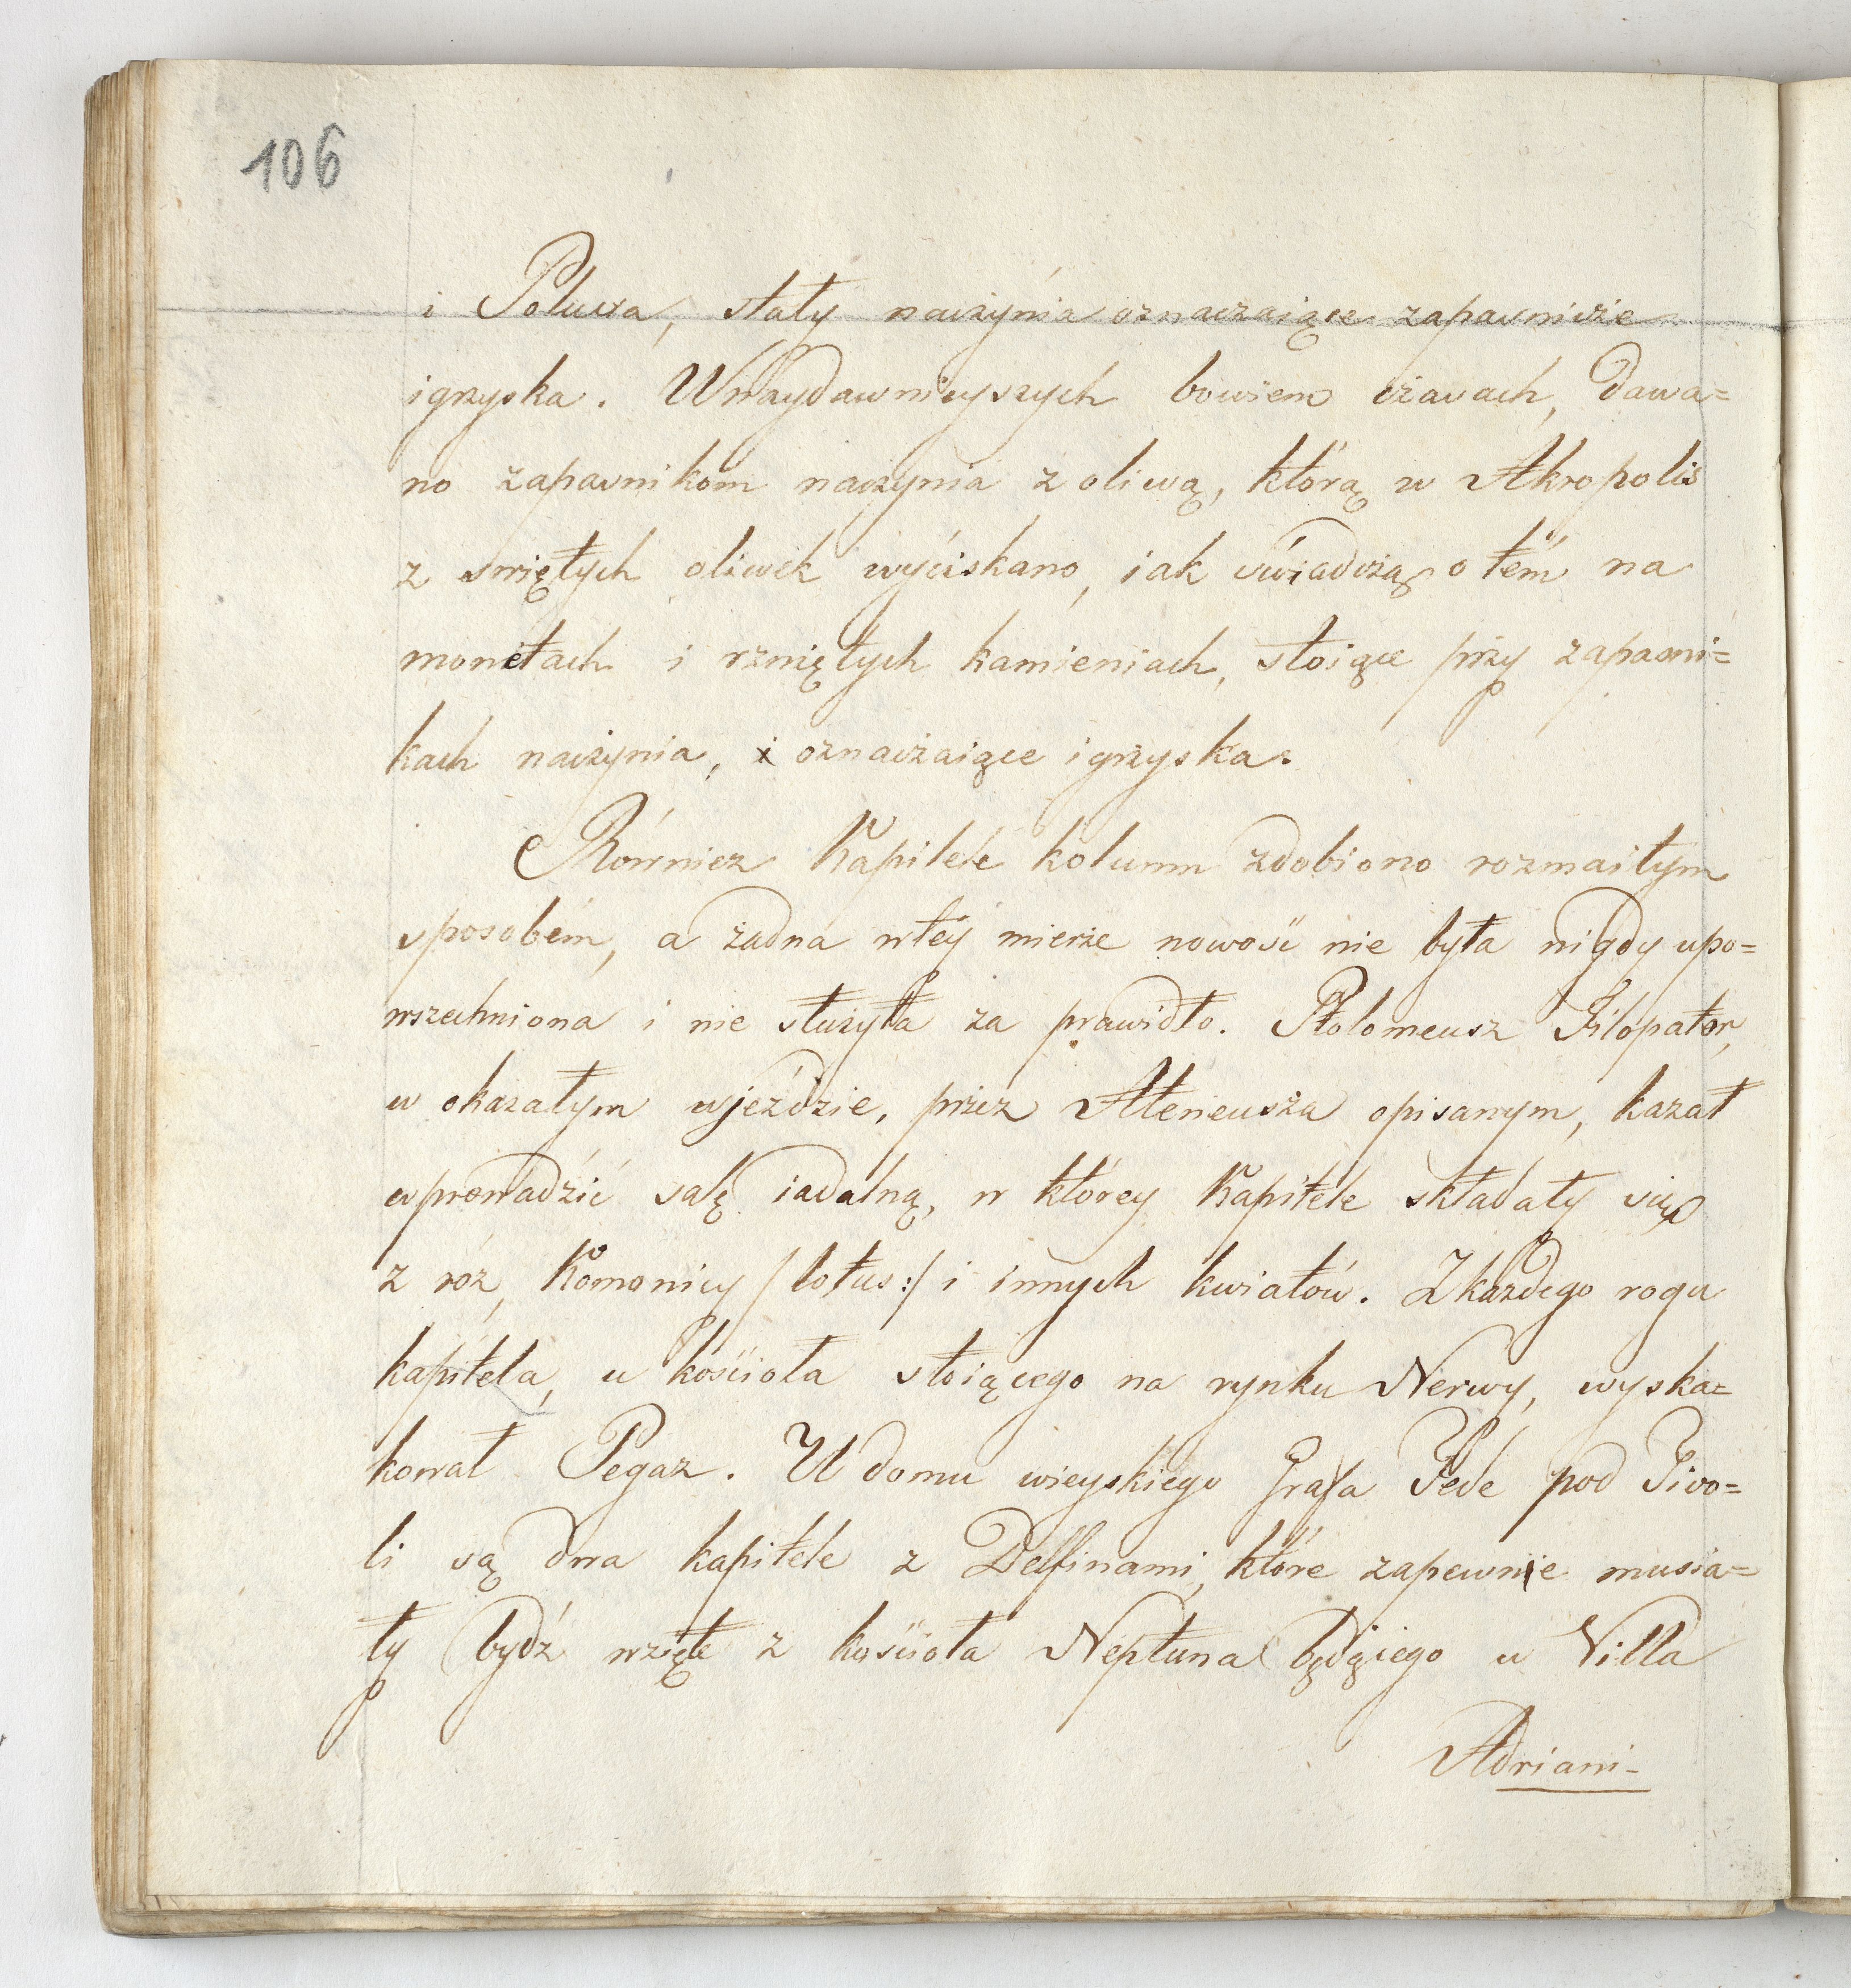 106
i Poluxa, stały naczynia oznaczaiące zapasnicze
igrzyska. Wnaydawnieyszych bowiem czasach, dawa=
no zapasnikom naczynia z oliwą, którą w Akropolis
z swiętych oliwek wyciskano, iak świadczą o tém na
monetach i rzniętych kamieniach, stoiące przy zapasni=
kach naczynia, i oznaczaiące igrzyska.
Również Kapitele kolumn zdobiono rozmaitym
sposobém, a żadna wtéy mierze nowość nie była nigdy upo=
wszechniona i nie służyła za prawidło. Ptolomeusz Filopator,
w okazałym wjeździe, przez Ateneusza opisanym, kazał
wprowadzić salę iadalną, w którey Kapitele składały się
z róż, Komonicy /:lotus:/ i innych kwiatów. Zkażdego rogu
kapitela, u kościoła stoiącego na rynku Nerwy, wyska=
kował Pegaz. W domu wieyskiego Grafa Fede pod Tivo=
li są dwa kapitele z Delfinami, które zapewnie musia=
ły bydź wzięte z kościoła Neptuna będącego w Villa
Adriani-